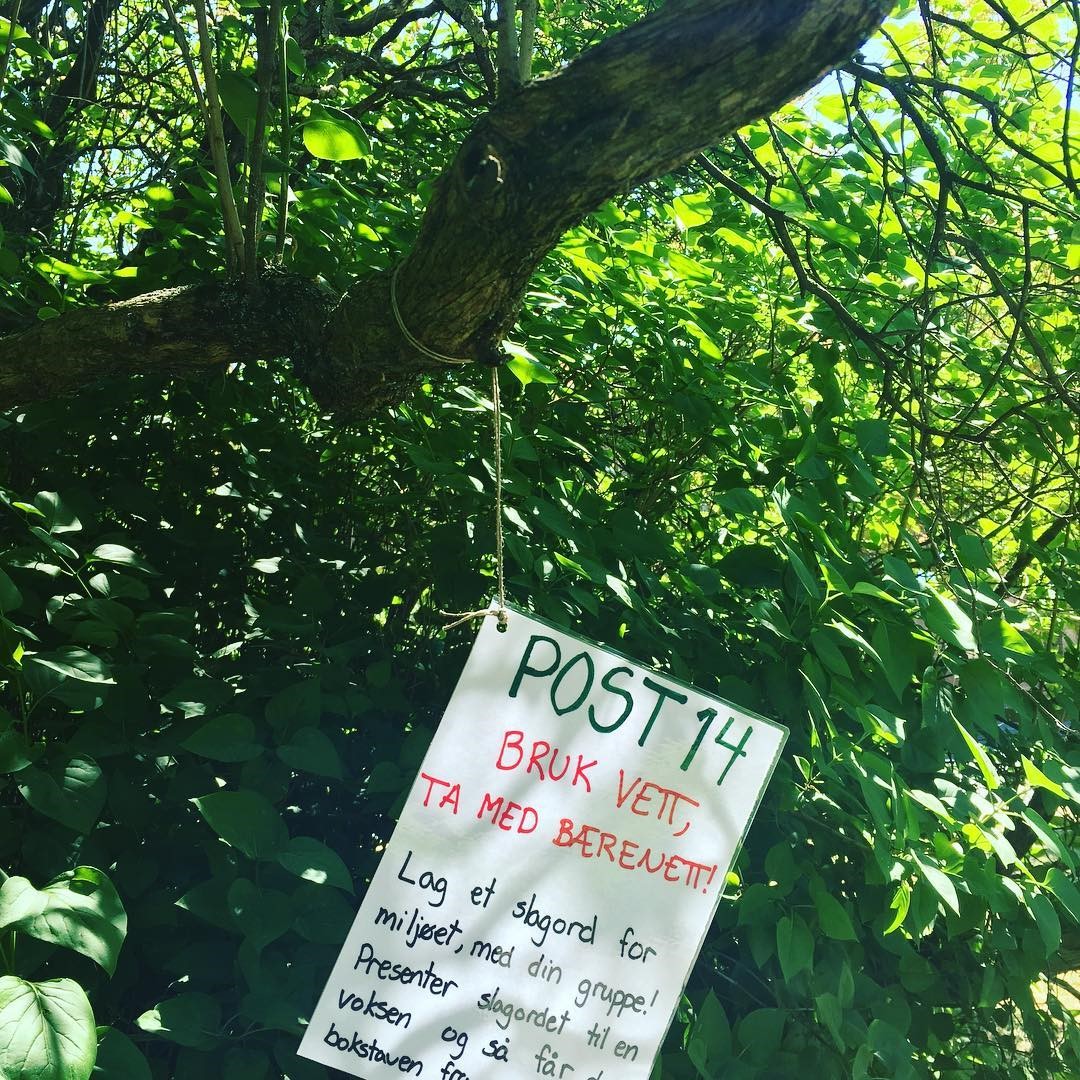 POST 14
BRUK VETT,
TA MED BÆRENETT!
Lag et slagord for
miljøet, med din gruppe!
Presenter slagordet til en
voksen og så får
bokstaven